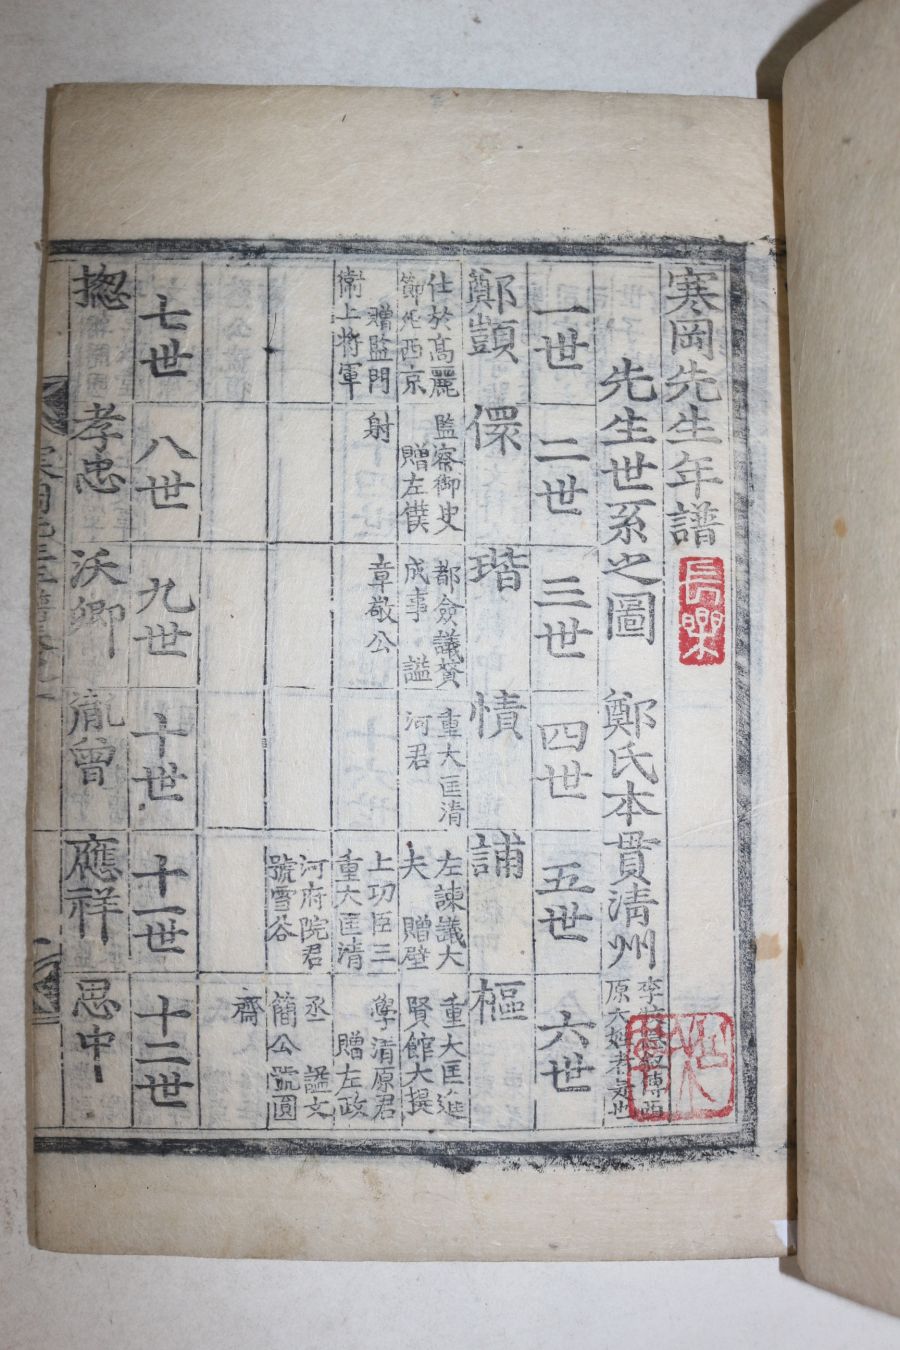 寒岡先生年譜
長樂
先生世系之圖 鄭氏本貫清州
一世 二世 三世 四世 五世 六世
鄭顗 儇 瑎 㥽 誧 樞
仕於高麗 監察御史 都僉議賛 重大匡清 左諫議大 重大匡進
節死西京 贈左僕 成事 謚 河君 夫 贈壁 賢館大提
贈監門 射 章敬公 上功臣三 學清原君
衛上將軍 重大匡清 贈左政
河府院君 丞 謚文
號雪谷 簡公號圓
齋
七世 八世 九世 十世 十一世 十二世
摠 孝忠 沃卿 胤曾 應祥 思中